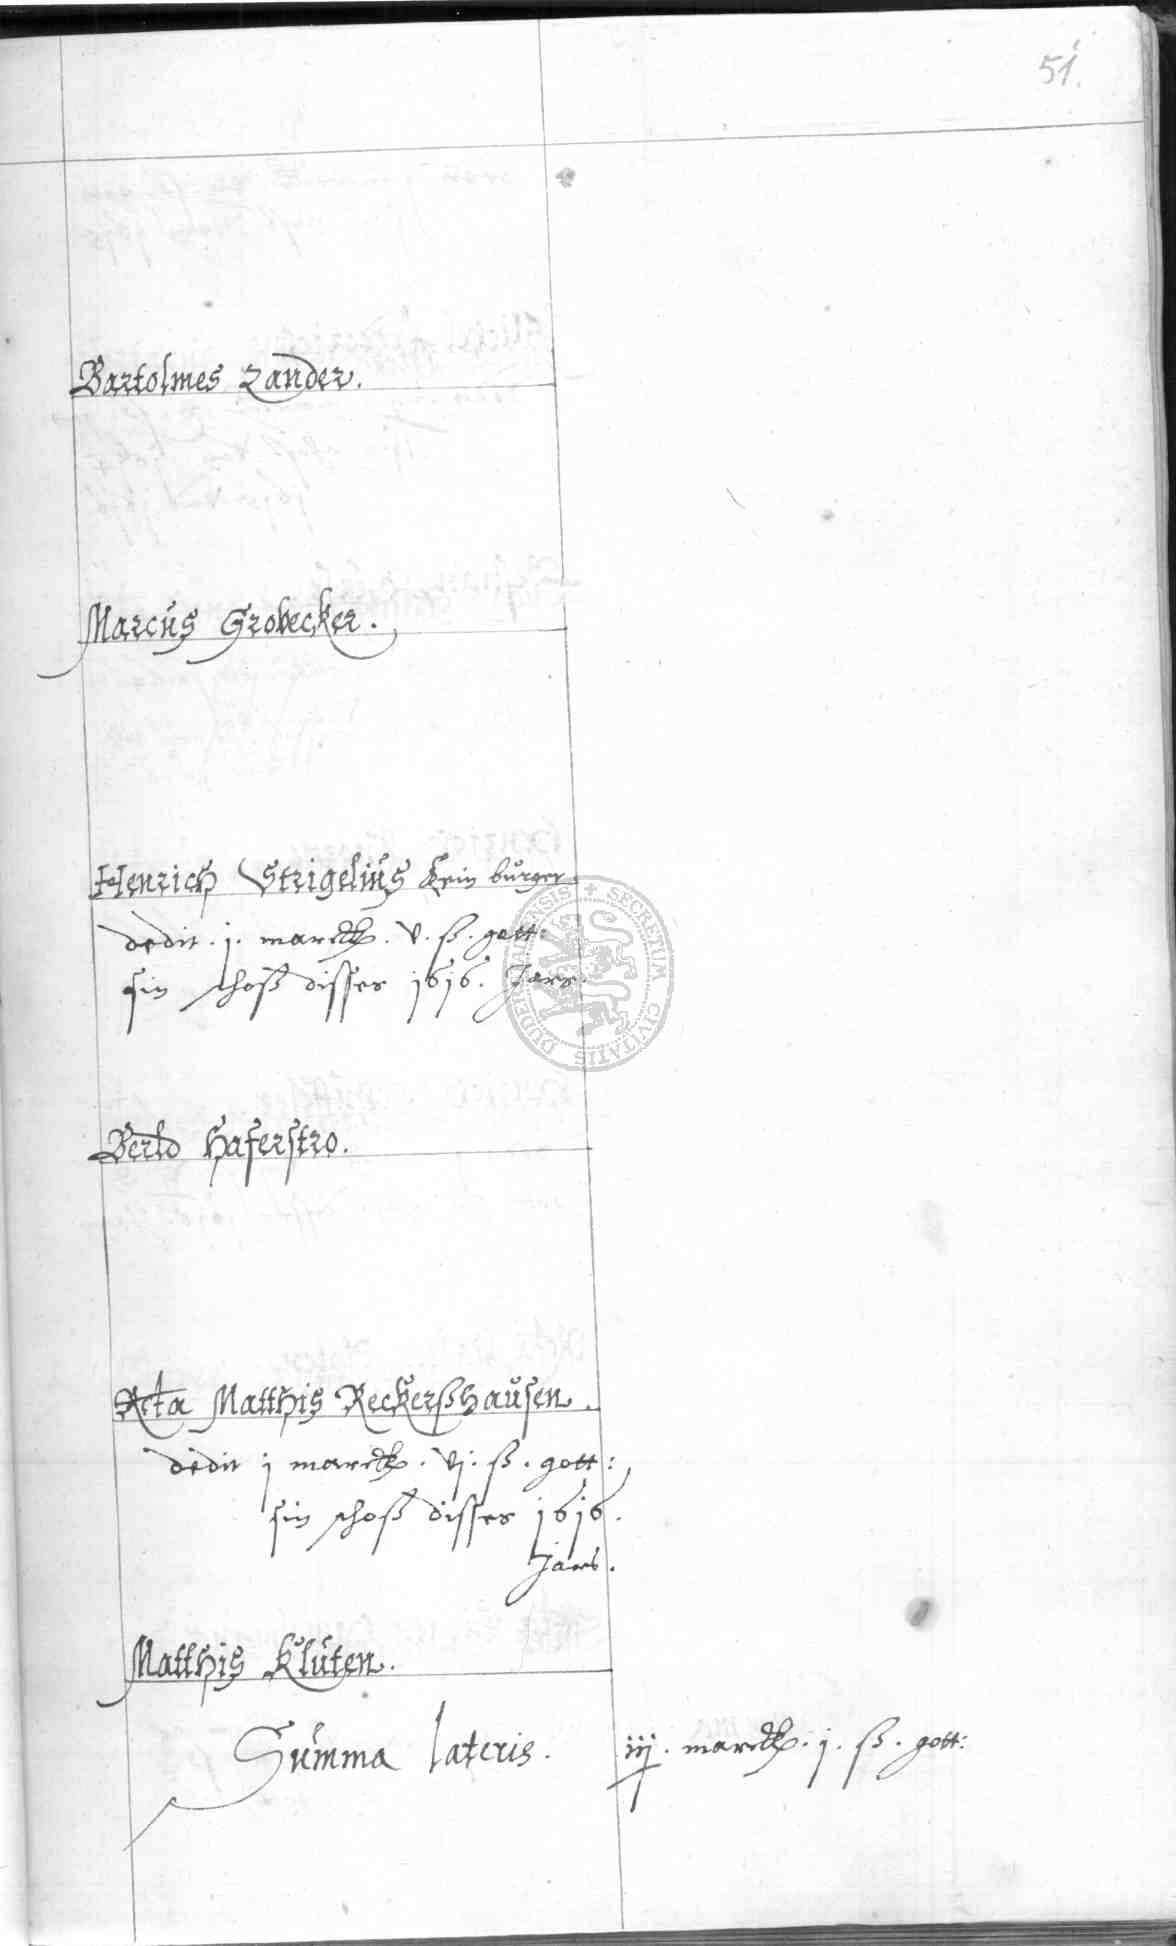 51.
Bartolmes Zander.
Marcus Grobecker.
Henrich Strigelius kein burger.
dedit . j . marck . v . ß . gott:
sin schoß disses 1616. Jars.
SECRETUM CIVITATIS DUDERSTADENSIS
Berld Haferstro.
Relicta Matthis Reckerßhausen.
dedit j marck . vj . ß . gott:
sin schoß disses 1616.
Jars.
Matthis Kluten.
Summa lateris. iij . marck . j . ß . gott: